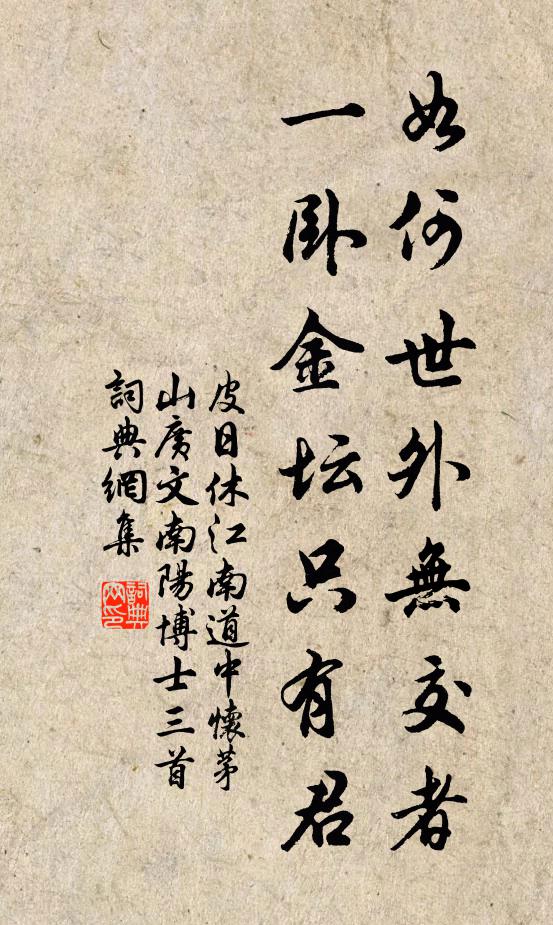 如何世外無交者
一卧金坛只有君
皮日休江南道中懷茅
山廣文南陽博士三首
詞典網集
詞典
网印